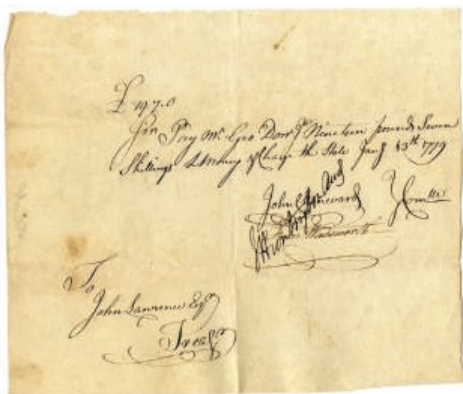 £ 19 7. 0
Sir Pay Mr. Geo Dorr Nineteen pounds Seven
Shillings & Charge the State Jany 13th 1779
John Chenevard
Wadsworth
Comtte
To
John Lawrence Esqr
Treasr